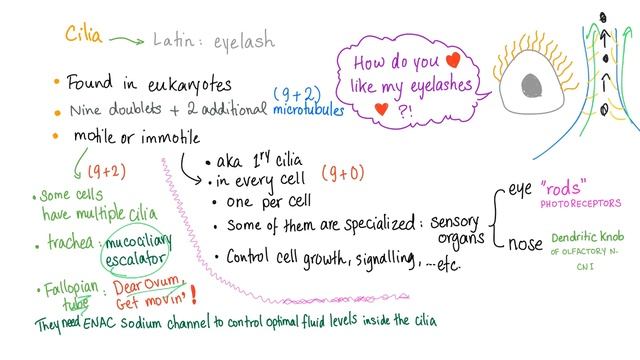 Cilia → Latin: eyelash
How do you ❤️
like my eyelashes
❤️ ?!
• Found in eukaryotes
(9+2)
• Nine doublets + 2 additional microtubules
• motile or immotile
(9+2)
• Some cells
have multiple cilia
• trachea: mucociliary
escalator
• Fallopian
tube
: Dear Ovum,
Get movin'!
• aka 1ry cilia
• in every cell (9+0)
• one per cell
• Some of them are specialized: sensory
organs
eye "rods"
PHOTORECEPTORS
nose Dendritic Knob
OF OLFACTORY N.
CN I
• Control cell growth, signalling, ...etc.
They need ENAC Sodium channel to control optimal fluid levels inside the cilia